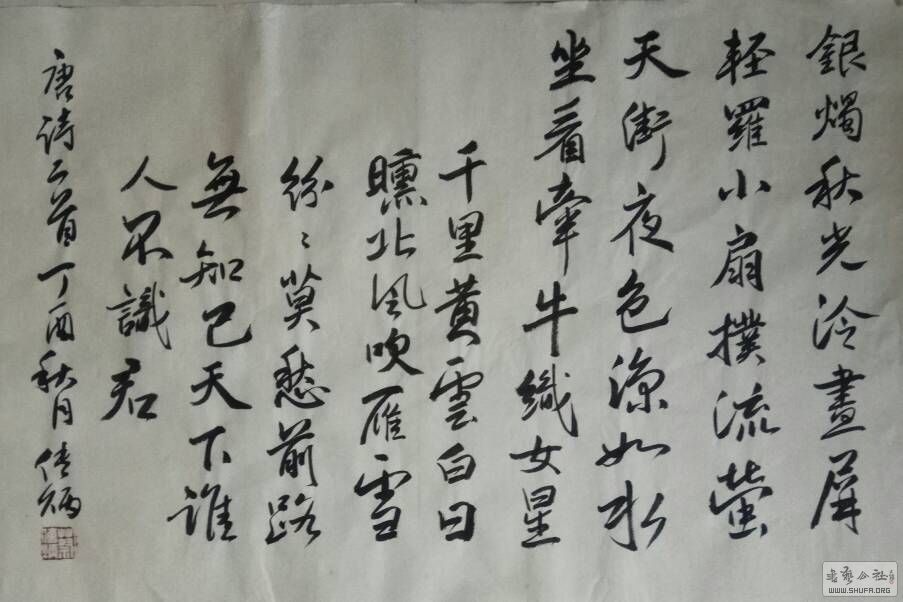 銀燭秋光冷畫屏
輕羅小扇撲流螢
天街夜色涼如水
坐看牽牛織女星
千里黃雲白日
曛北風吹雁雪
紛〻莫愁前路
無知己天下誰
人不識君
唐詩二首丁酉秋月
書藝公社
WWW.SHUFA.ORG